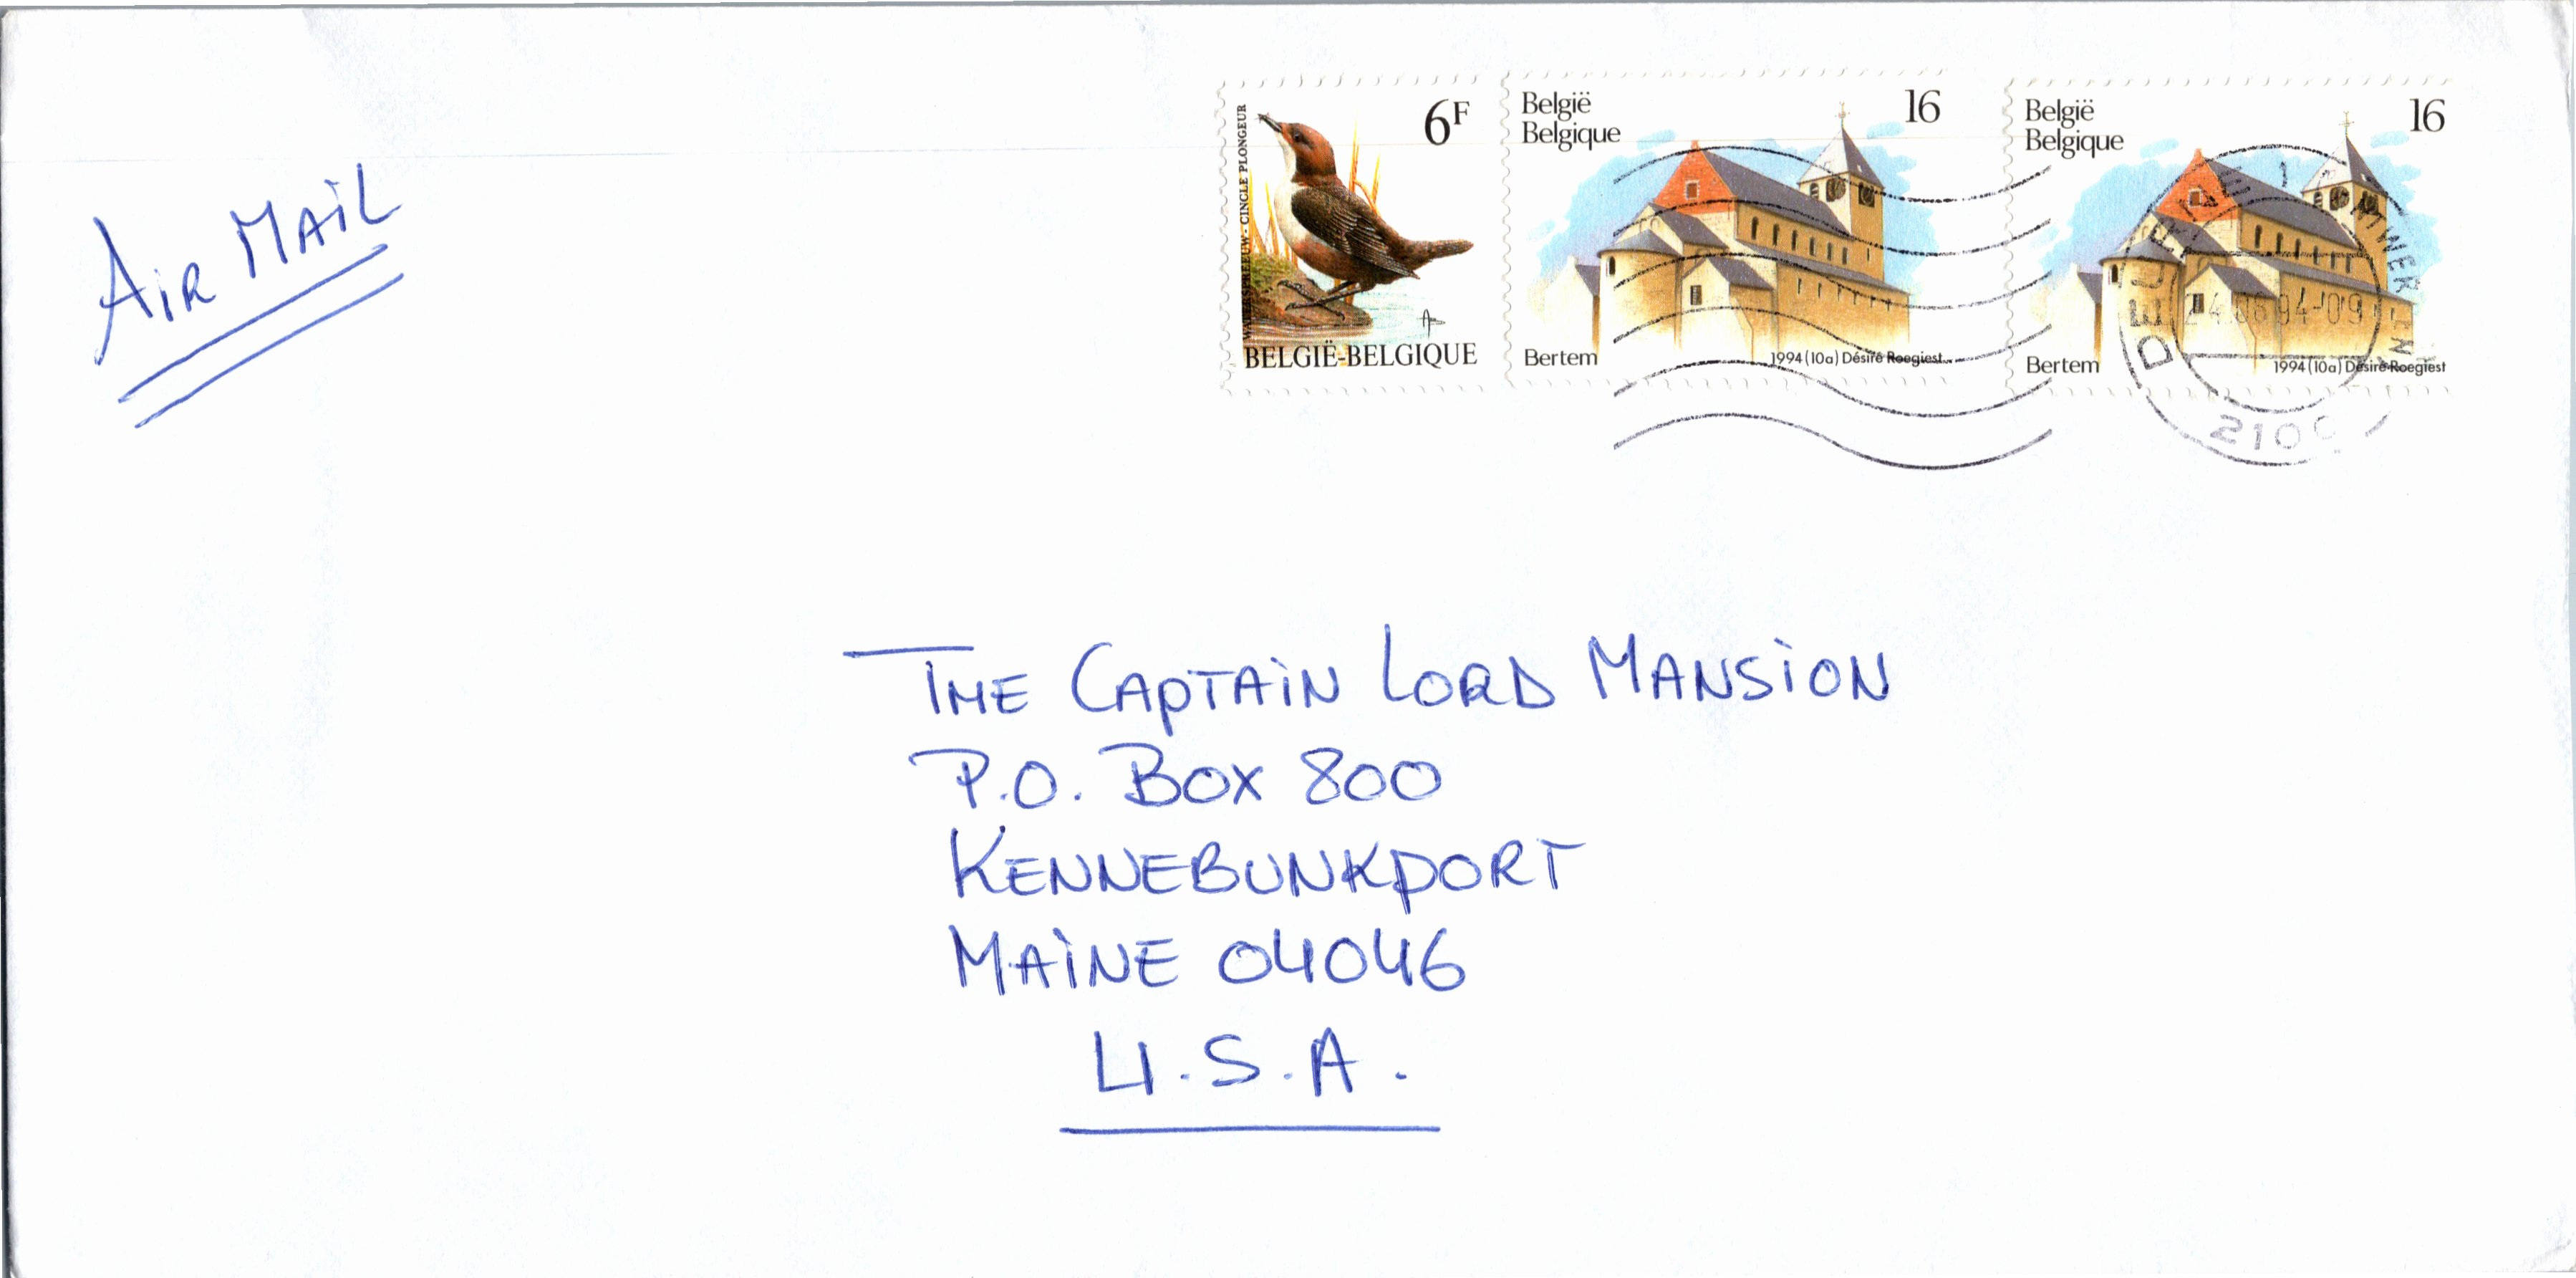 AiR MAiL
WATERSPREEUW - CINCLE PLONGEUR
6F
BELGIË-BELGIQUE
België
Belgique
16
Bertem
1994 (10a) Désiré Roegiest
België
Belgique
16
Bertem
1994 (10a) Désiré Roegiest
DEURNE 1 ANTWERPEN
94-09
2100
THE CAPTAiN LORD MANSiON
P.O. BOX 800
KENNEBUNKPORT
MAiNE 04046
U.S.A.